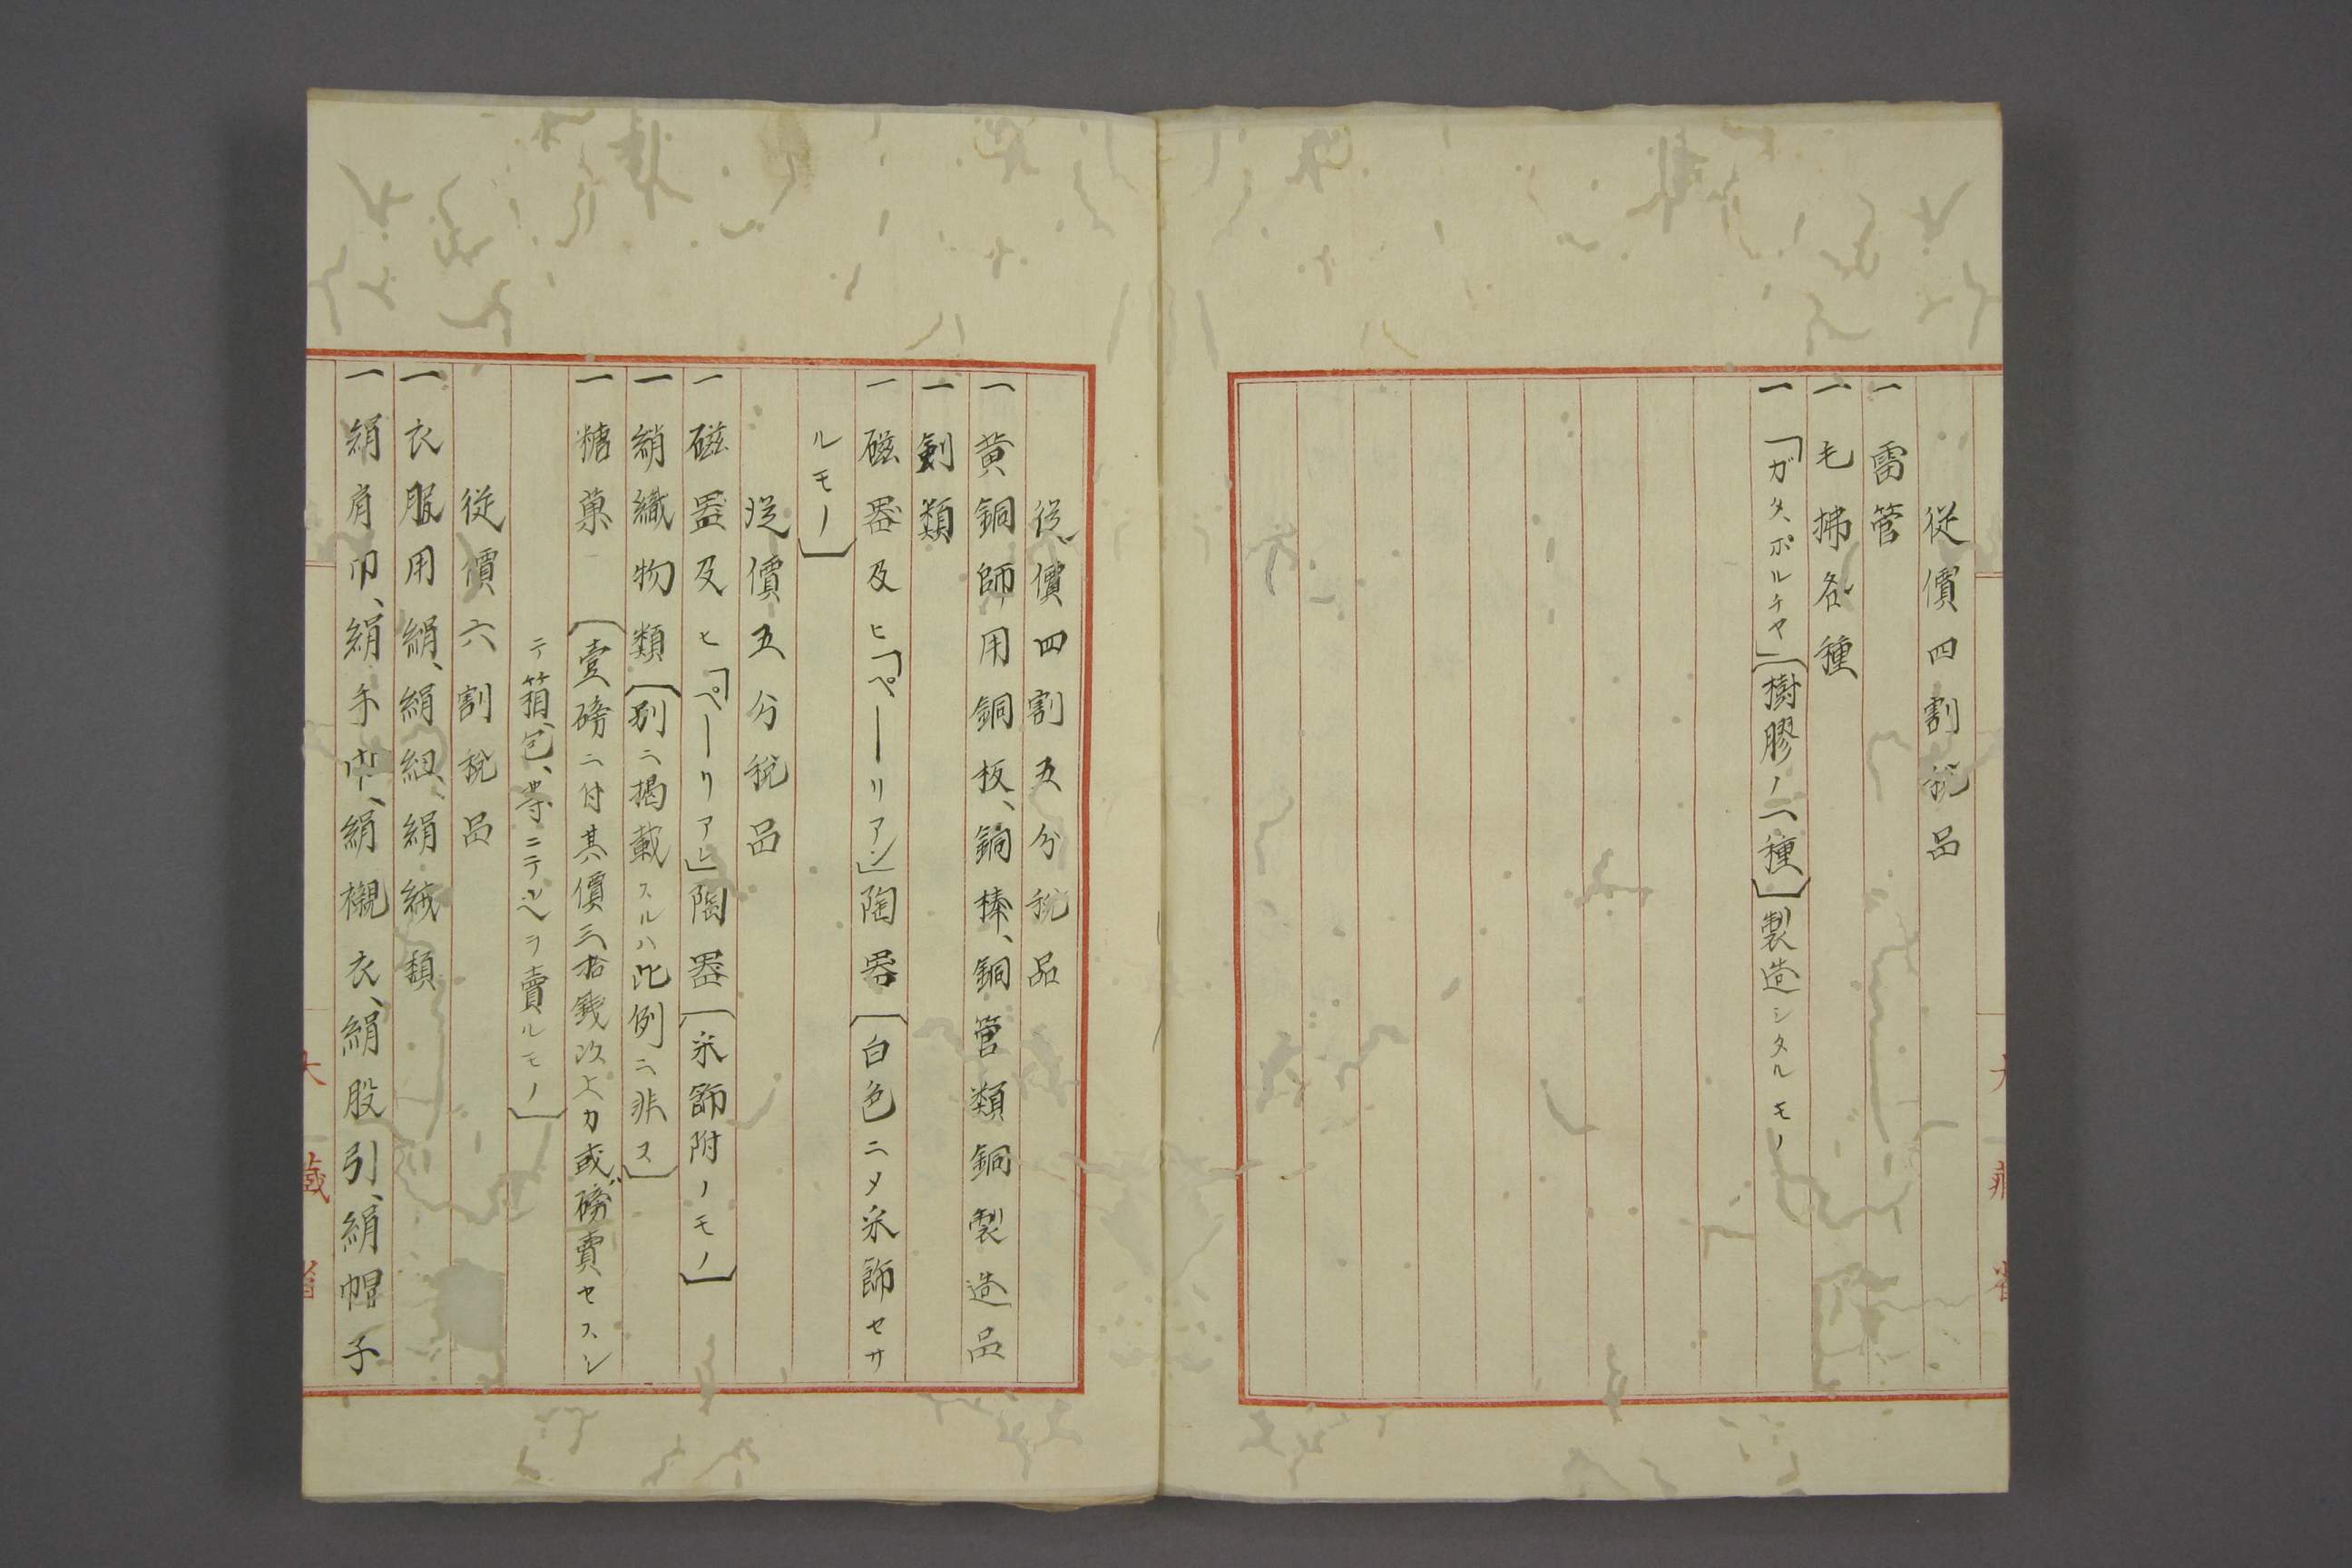 従價四割税品
一雷管
一毛拂各種
一「ガタ、ポルチヤ」〔樹膠ノ一種〕製造シタルモノ
従價四割五分税品
一黄銅師用銅板、銅棒、銅管類銅製造品
一剣類
一磁器及ヒ「ペーリアン」陶器〔白色ニメ采飾セサ
ルモノ〕
従價五分税品
一磁器及ヒ「ペーリアン」陶器〔采飾附ノモノ〕
一綃織物類〔別ニ掲載スルハ此例ニ非ス〕
一糖菓〔壹磅ニ付其價三拾銭以上カ或磅賣セスシ
テ箱、包、等ニテ賣ルモノ〕
従價六割税品
一衣服用絹、絹紐、絹絨類
一絹肩巾、絹手巾、絹襯衣、絹股引、絹帽子
大藏省